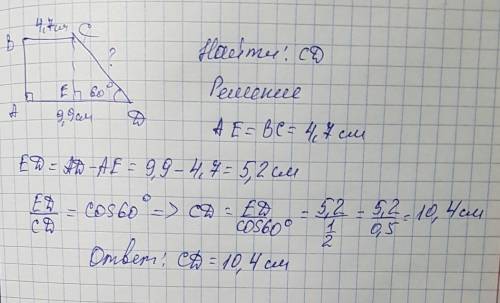 4,7см
B C
?
E 60°
A D
9,9см
Найти: CD
Решение
AE = BC = 4,7 см
ED = AD - AE = 9,9 - 4,7 = 5,2 см
ED/CD = cos60° => CD = ED/cos60° = 5,2/(1/2) = 5,2/0,5 = 10,4 см
Ответ: CD = 10,4 см